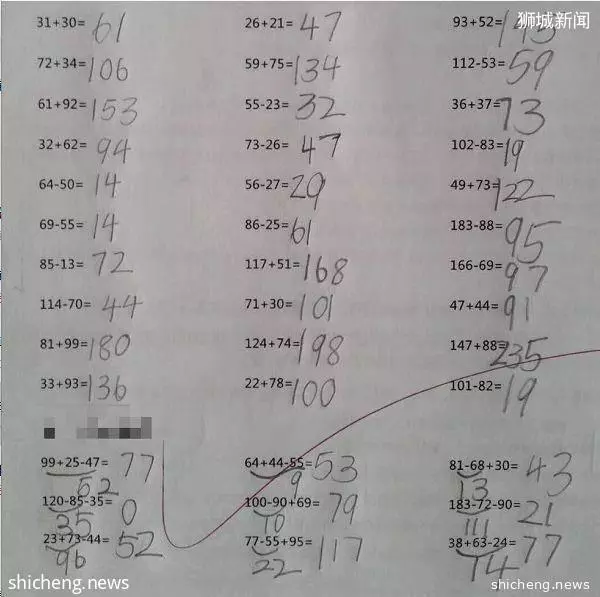 狮城新闻
31+30=61 26+21=47 93+52=145
72+34=106 59+75=134 112-53=59
61+92=153 55-23=32 36+37=73
32+62=94 73-26=47 102-83=19
64-50=14 56-27=29 49+73=122
69-55=14 86-25=61 183-88=95
85-13=72 117+51=168 166-69=97
114-70=44 71+30=101 47+44=91
81+99=180 124+74=198 147+88=235
33+93=136 22+78=100 101-82=19
99+25-47=77 64+44-55=53 81-68+30=43
52 9 13
120-85-35=0 100-90+69=79 183-72-90=21
35 10 111
23+73-44=52 77-55+95=117 38+63-24=77
96 22
shicheng.news shicheng.news